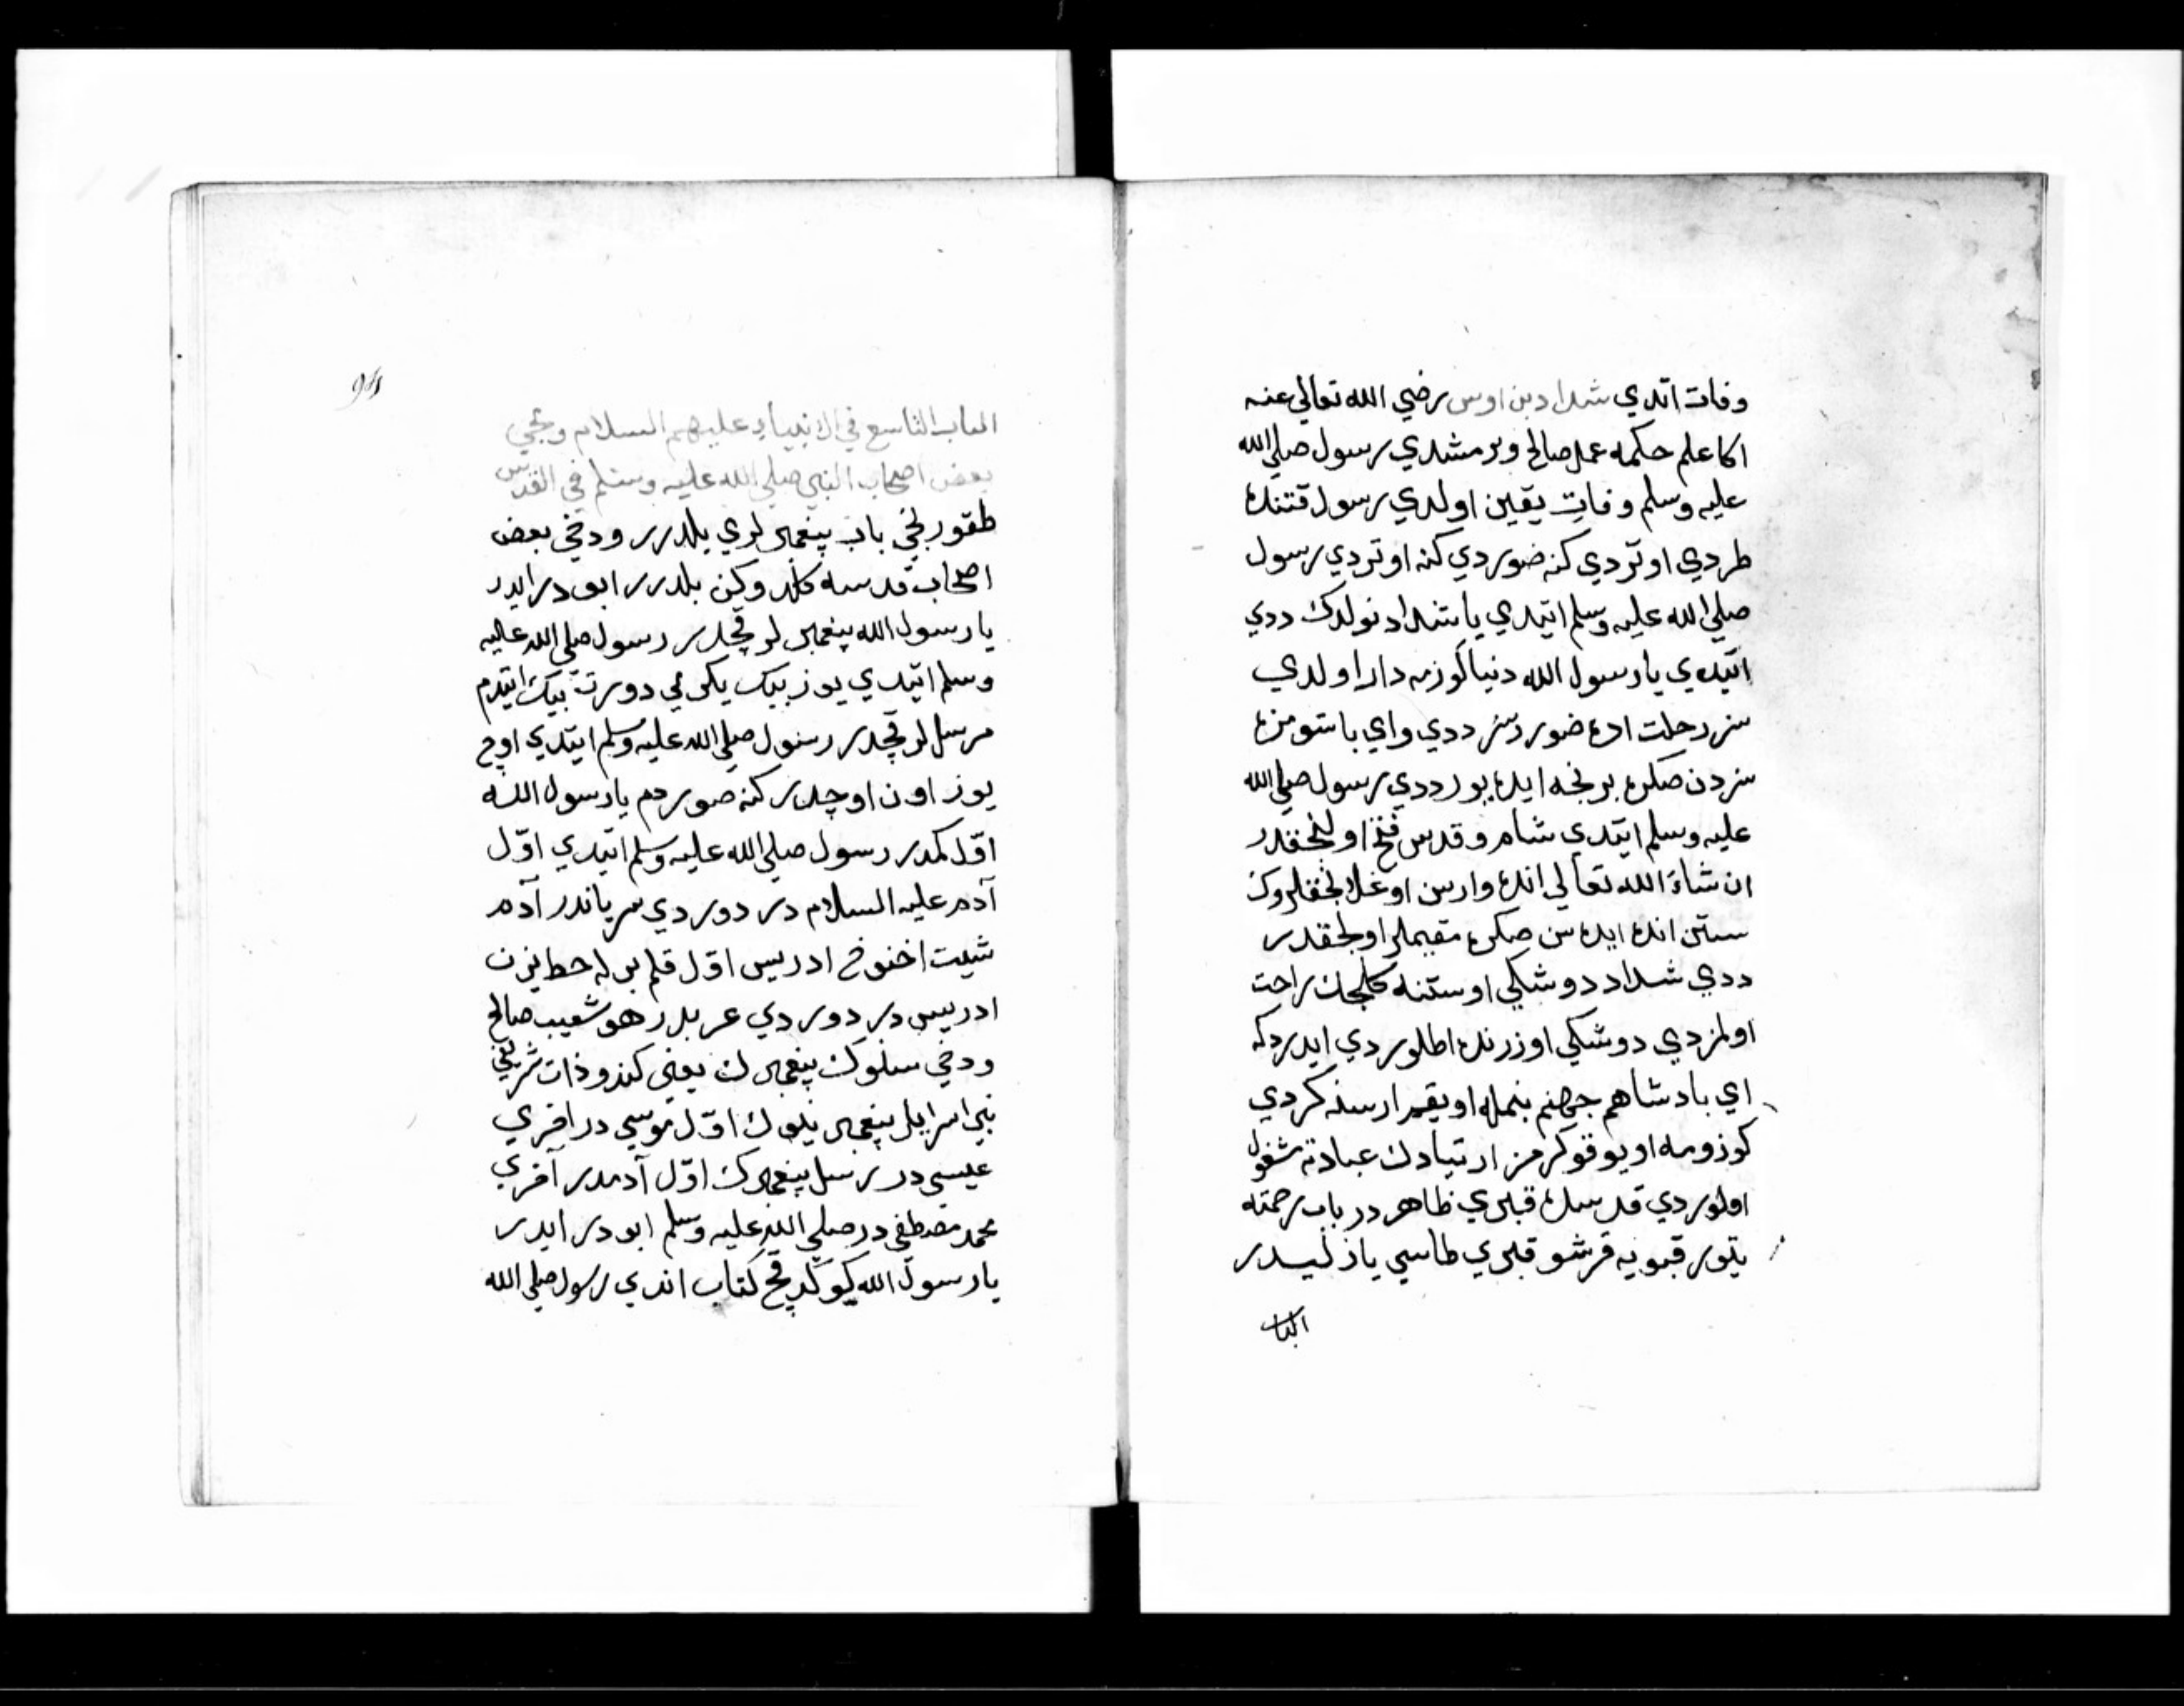 وفات اتدي شداد بن اوس رضي الله تعالي عنه
اكا علم حكمه عمل صالح ويرمشدي رسول صلي الله
عليه وسلم وفات يقين اولدي رسول قتنده
طردي اوتردي كنه ضوردي كنه اوتردي رسول
صلي الله عليه وسلم اتيدي يا شداد نولدك ددي
اتيدي يا رسول الله دنيا كوزمه دار اولدي
سز رحلت اده ضورر سز ددي واي باشومزه
سزدن صكره بز نجه ايده يور ددي رسول صلي الله
عليه وسلم ايتدي شام و قدس فتح اولنجقدر
ان شاء الله تعالي انده وارسن اوغلانجقلروك
ستن انده ايده سن صكره مقيملر اولجقدر
ددي شداد دوشكي اوستنه كلجك راحت
اولمزدي دوشكي اوزرنده اطلوردي ايدردكه
اي بادشاهم جهنم بنمله اويقم ارسنه كردي
كوزومه اويوقو كرمز ارتيادك عبادته شغول
اولوردي قدسده قبري ظاهر در باب رحمته
يتور قبويه قرشو قبري طاسي يازليسدر
الباب
94
الباب التاسع في الانبياء عليهم السلام ومجي
بعض اصحاب النبي صلي الله عليه وسلم في القدس
طقورنجي باب پيغمبرلري يلدرر ودخي بعض
اصحاب قدسه كلدوكن بلدرر ابو در ايدر
يا رسول الله پيغمبرلر قچدر رسول صلي الله عليه
وسلم اتيدي يوز بيك يكرمي دورت بيك ايتدم
مرسللر قچدر رسول صلي الله عليه وسلم ايتدي اوچ
يوز اون اوچدر كنه صوردم يا رسول الله
اوّل كمدر رسول صلي الله عليه وسلم اتيدي اوّل
آدم عليه السلام در دوردي سرياندر آدم
شيت اخنوخ ادريس اوّل قلم برله خط يزن
ادريس در دوردي عربدر هو شعيب صالح
ودخي سنلوك پيغمبرك يعني كندو ذات شريفي
بني اسرايل پيغمبرينلوك اوّل موسي در اخري
عيسي در رسل پيغمبرك اوّل آدمدر آخري
محمد مصطفي در صلي الله عليه وسلم ابو در ايدر
يا رسول الله كوكدن قچ كتاب اندي رسول صلي الله